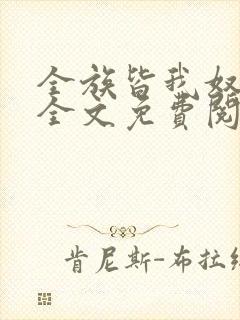 全族皆我奴
全文免費閱
肯尼斯-布拉納